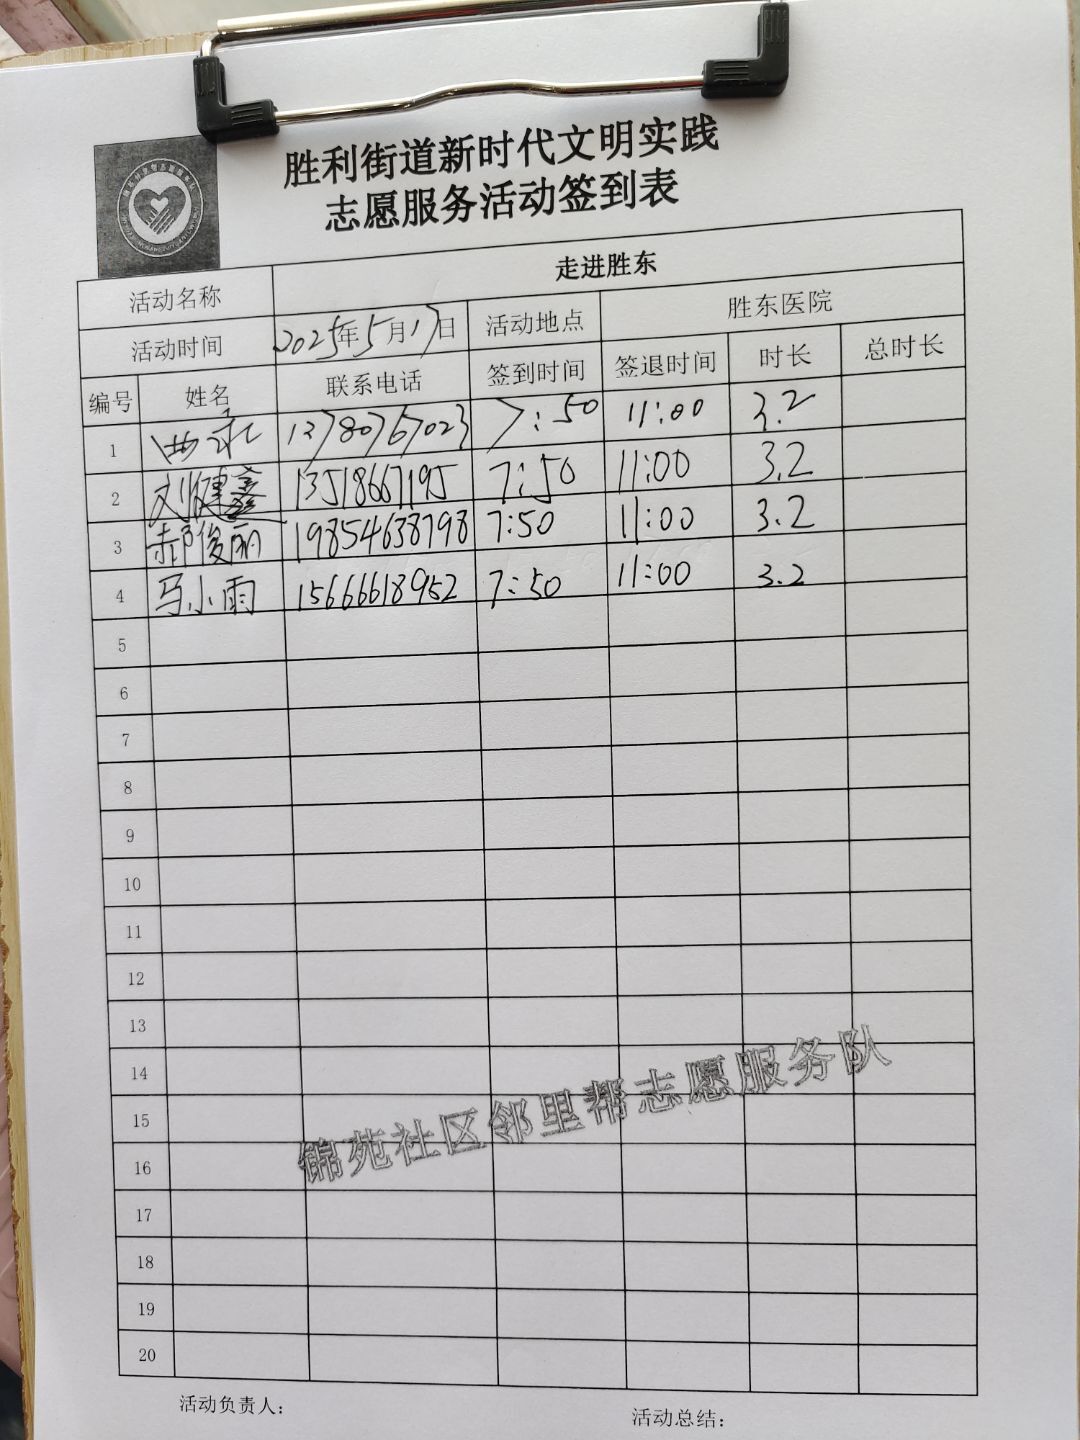 胜利街道新时代文明实践
志愿服务活动签到表
活动名称 走进胜东
活动时间 2025年5月17日 活动地点 胜东医院
编号 姓名 联系电话 签到时间 签退时间 时长 总时长
1 13780767023 7:50 11:00 3.2
2 刘健鑫 13518667195 7:50 11:00 3.2
3 郝俊丽 19854638798 7:50 11:00 3.2
4 马小雨 15666618952 7:50 11:00 3.2
5
6
7
8
9
10
11
12
13
14
15
16
17
18
19
20
锦苑社区邻里帮志愿服务队
活动负责人：
活动总结：